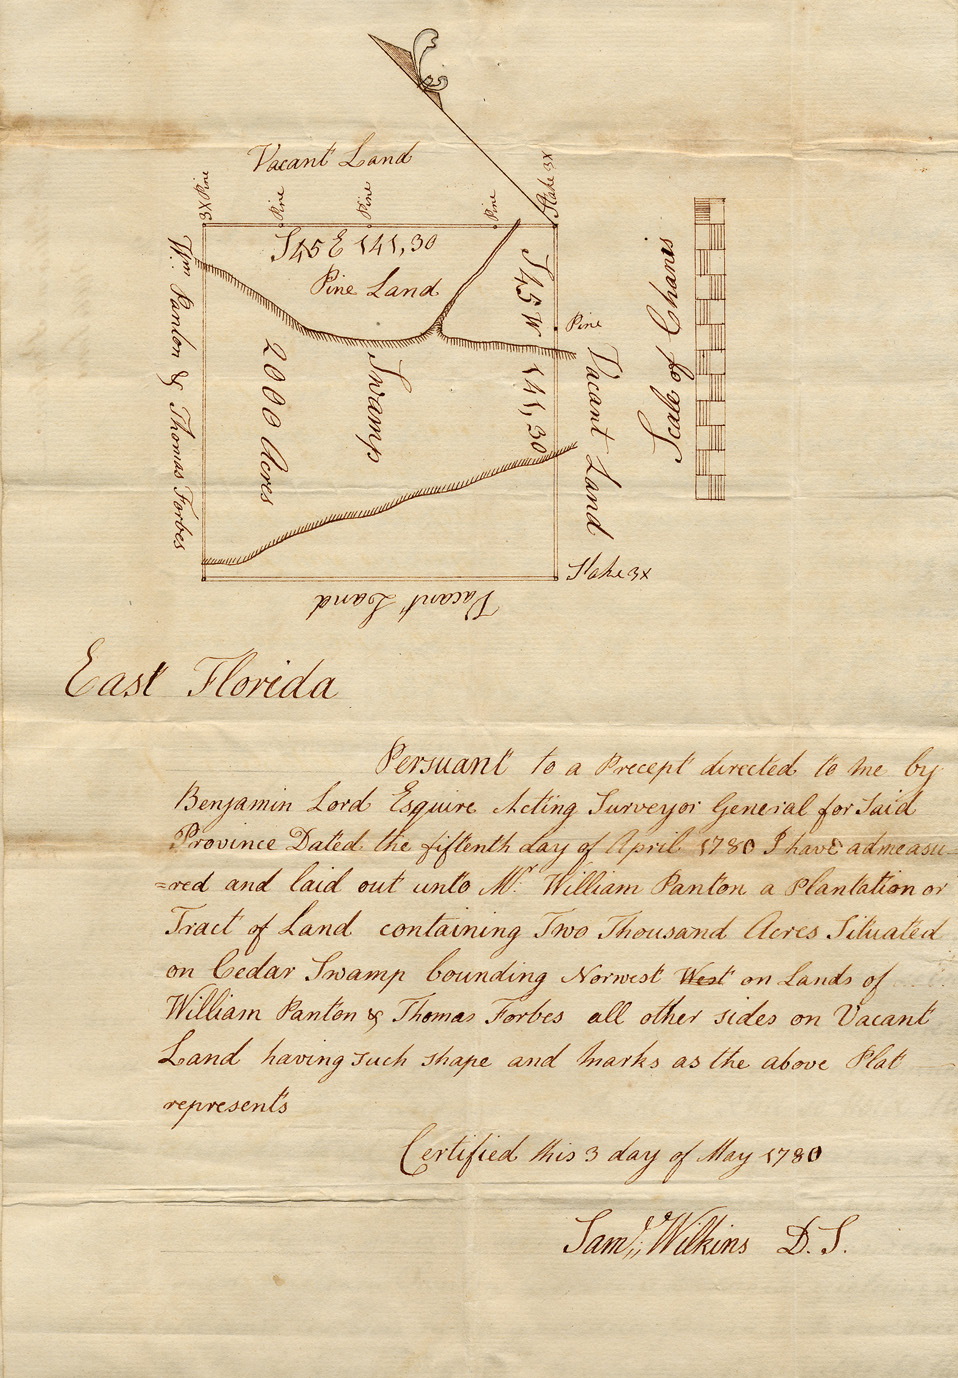 Vacant Land
3X Pine
Pine
Pine
Pine
Stake 3X
S45E 141,30
Pine Land
S45W 141,30
Pine
Wm. Panton & Thomas Forbes
2000 Acres
Swamp
Vacant Land
Scale of Chanis
Stake 3X
Vacant Land
East Florida
Persuant to a Precept directed to me by
Benjamin Lord Esquire Acting Surveyor General for Said
Province Dated the fifteenth day of April 1780 I have admeasu=
=red and laid out unto Mr. William Panton a Plantation or
Tract of Land containing Two Thousand Acres Situated
on Cedar Swamp bounding Norwest West on Lands of
William Panton & Thomas Forbes all other sides on Vacant
Land having such shape and marks as the above Plat
represents
Certified this 3 day of May 1780
Saml. Wilkins D.S.